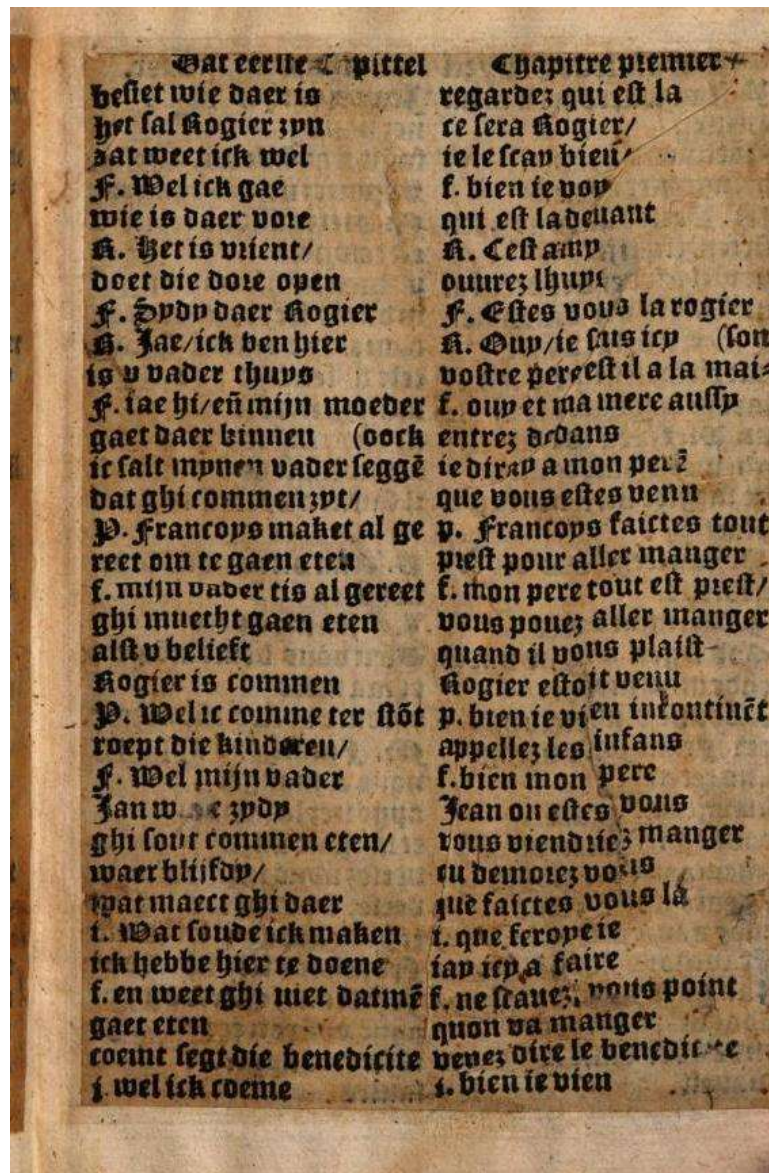 Dat eerste Capittel
besiet wie daer is
het sal Rogier zyn
dat weet ick wel
F. Wel ick gae
wie is daer vore
R. Het is vrient/
doet die dore open
F. Sydy daer Rogier
R. Jae/ick ben hier
is v vader thuys
F. iae hi/eñ mijn moeder
gaet daer binnen (oock
ic salt mynen vader seggē
dat ghi commen zyt/
P. Francoys maket al ge
reet om te gaen eten
f. mijn vader tis al gereet
ghi muecht gaen eten
alst v belieft
Rogier is commen
P. Wel ic comme ter stōt
roept die kinderen/
F. Wel mijn vader
Jan zydy
ghi sout commen eten/
waer blijfdy/
wat maect ghi daer
i. Wat soude ick maken
ick hebbe hier te doene
f. en weet ghi niet datmē
gaet eten
coemt segt die benedicite
i. wel ick coeme
Chapitre premier
regardez qui est la
ce sera Rogier/
ie le scay bien/
f. bien ie voy
qui est ladeuant
R. Cest amy
ouurez lhuys
F. Estes vous la rogier
R. Ouy/ie suis icy (son
vostre pere est il a la mai⸗
f. ouy et ma mere aussy
entrez dedans
ie diray a mon perē
que vous estes venu
p. Francoys faictes tout
prest pour aller manger
f. mon pere tout est prest/
vous pouez aller manger
quand il vous plaist
Rogier estoit venu
p. bien ie vien incontinēt
appellez les infans
f. bien mon pere
Jean ou estes vous
vous viendriez manger
ou demorez vous
que faictes vous la
i. que feroye ie
iay icy a faire
f. ne scauez vous point
quon va manger
venez dire le benedicite
i. bien ie vien